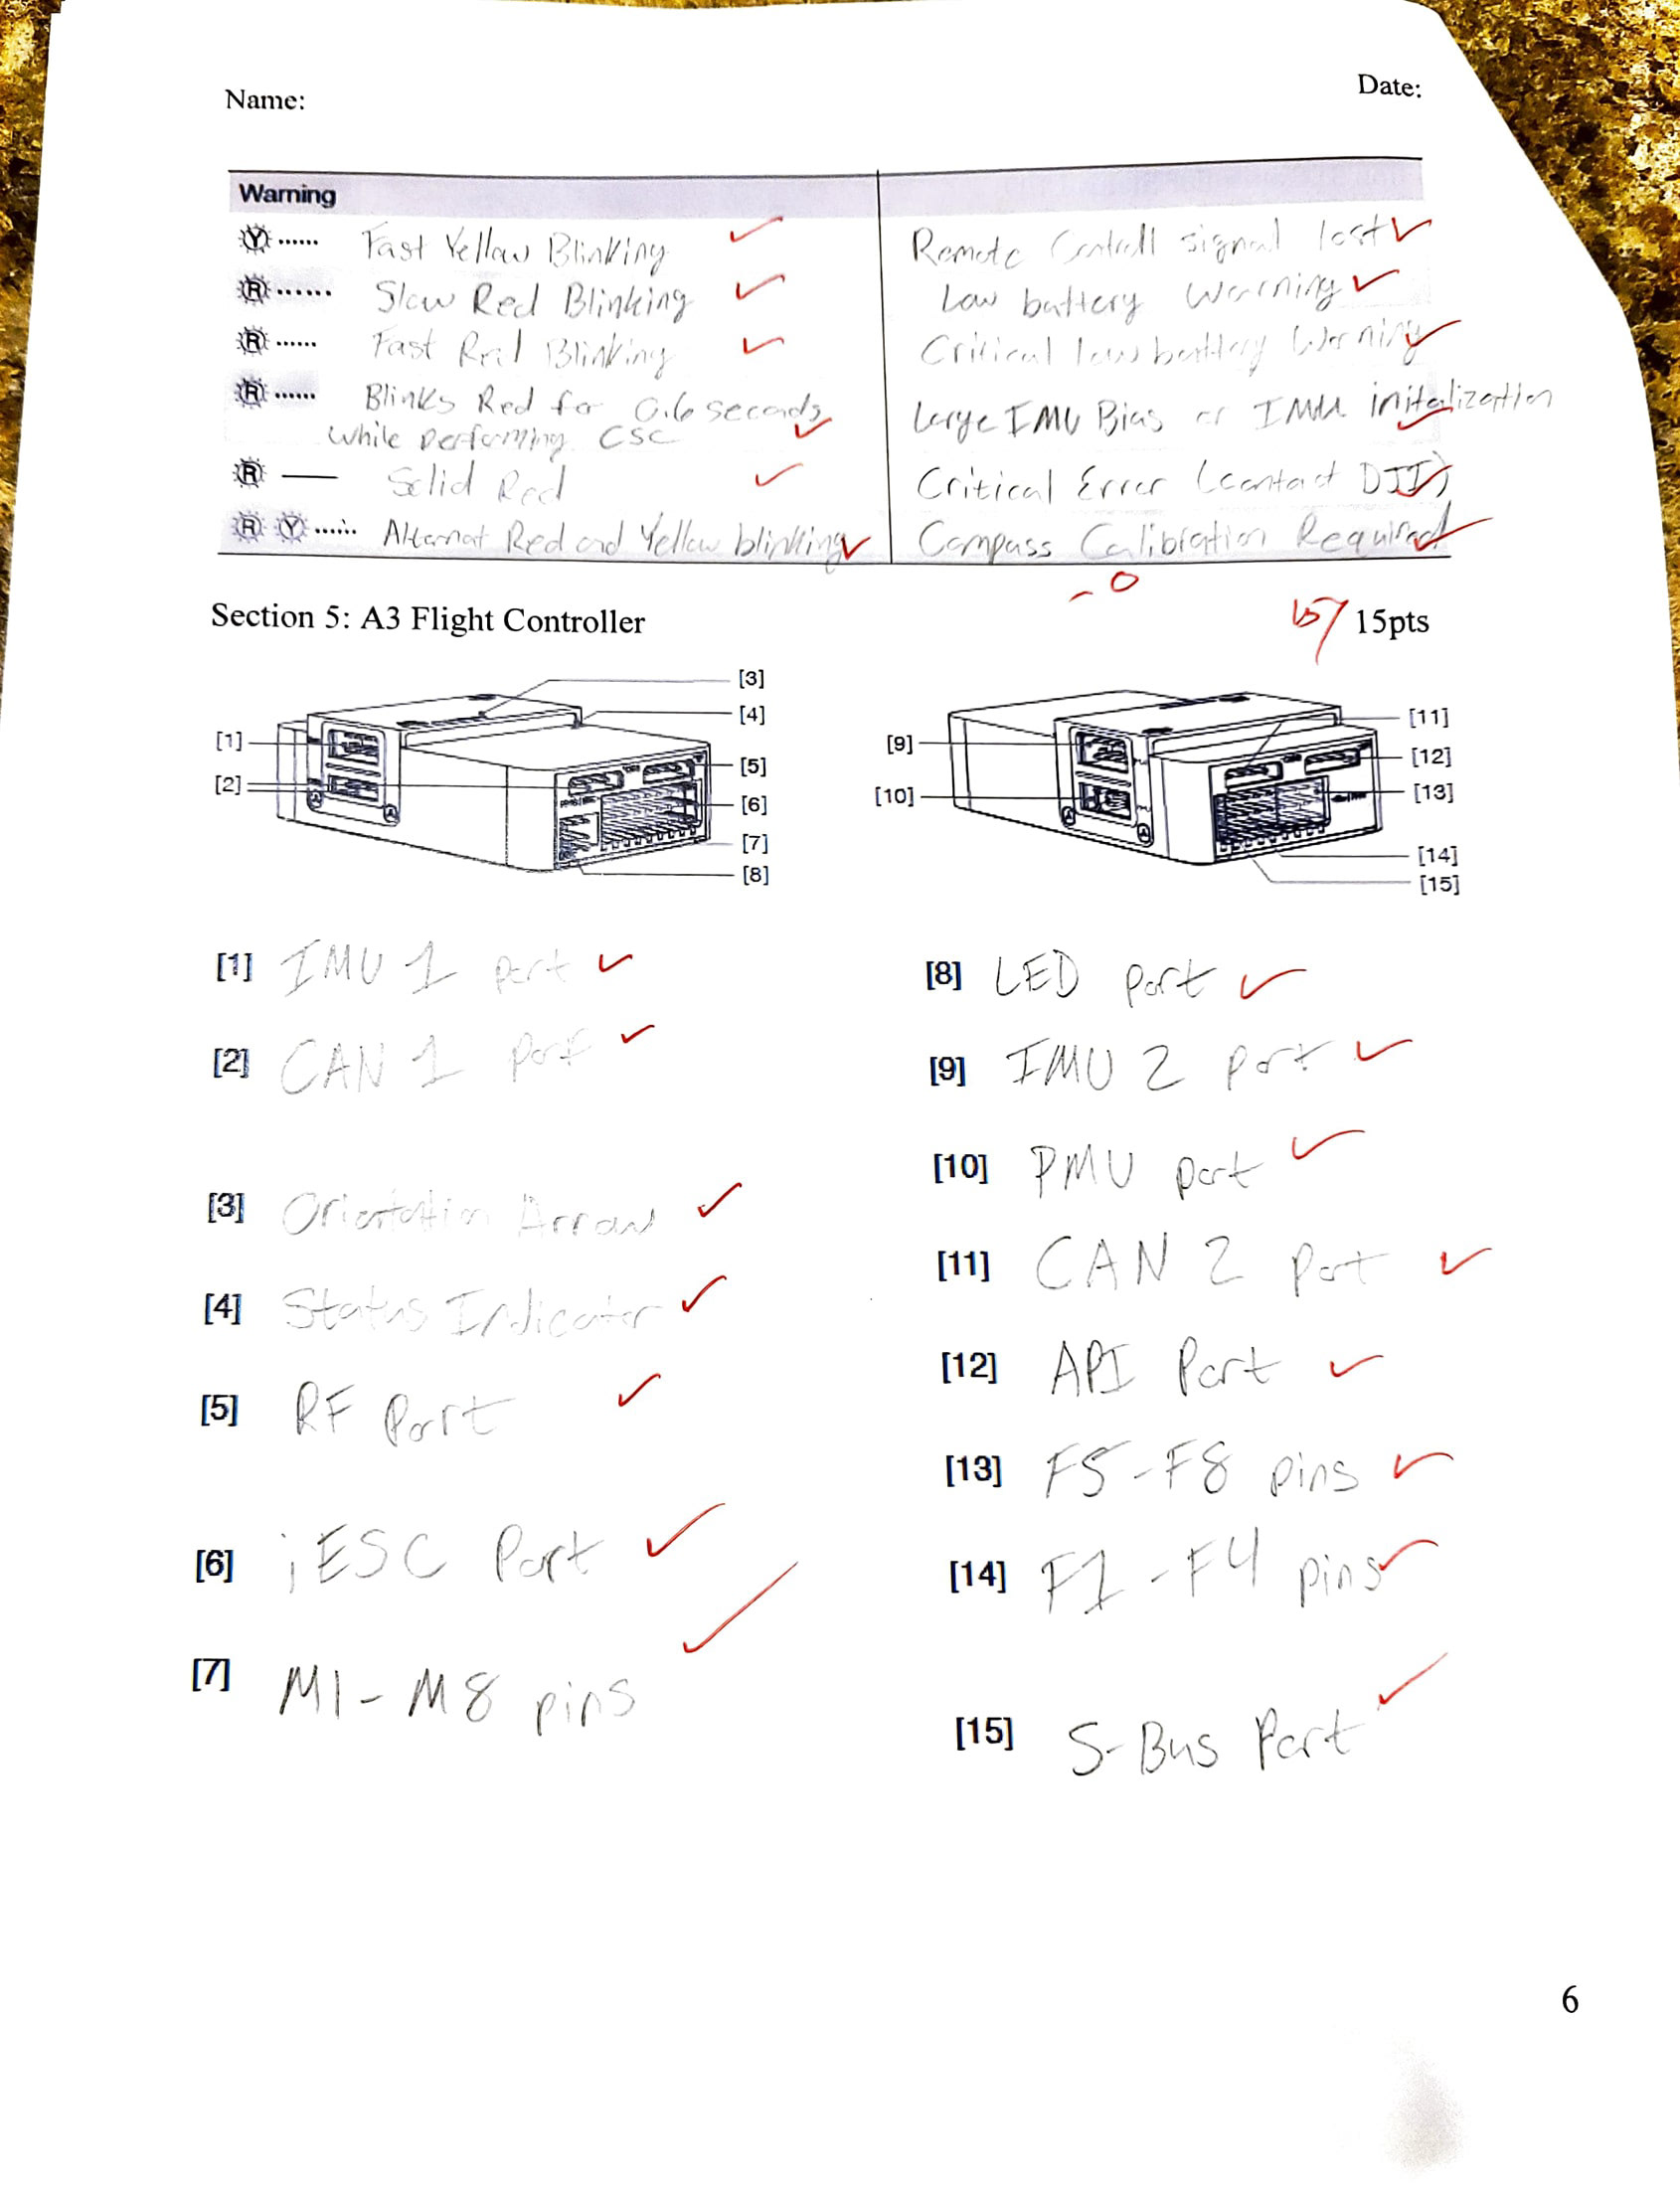 Name: Date:
Warning
Y ...... Fast Yellow Blinking Remote Controll signal lost
R ...... Slow Red Blinking Low battery Warning
R ...... Fast Red Blinking Critical low battery Warning
R ...... Blinks Red for 0.6 seconds Large IMU Bias or IMU initalization
while performing CSC
R — Solid Red Critical Error (contact DJI)
R Y ...... Alternat Red and Yellow blinking Compass Calibration Required
-0
Section 5: A3 Flight Controller 15/ 15pts
[3]
[4]
[1]
[5]
[2]
[6]
[7]
[8]
[11]
[9]
[12]
[10]
[13]
[14]
[15]
[1] IMU 1 port
[2] CAN 1 port
[3] Orientation Arrow
[4] Status Indicator
[5] RF Port
[6] iESC Port
[7] M1-M8 pins
[8] LED port
[9] IMU 2 port
[10] PMU port
[11] CAN 2 Port
[12] API Port
[13] F5-F8 pins
[14] F1-F4 pins
[15] S-Bus Port
6